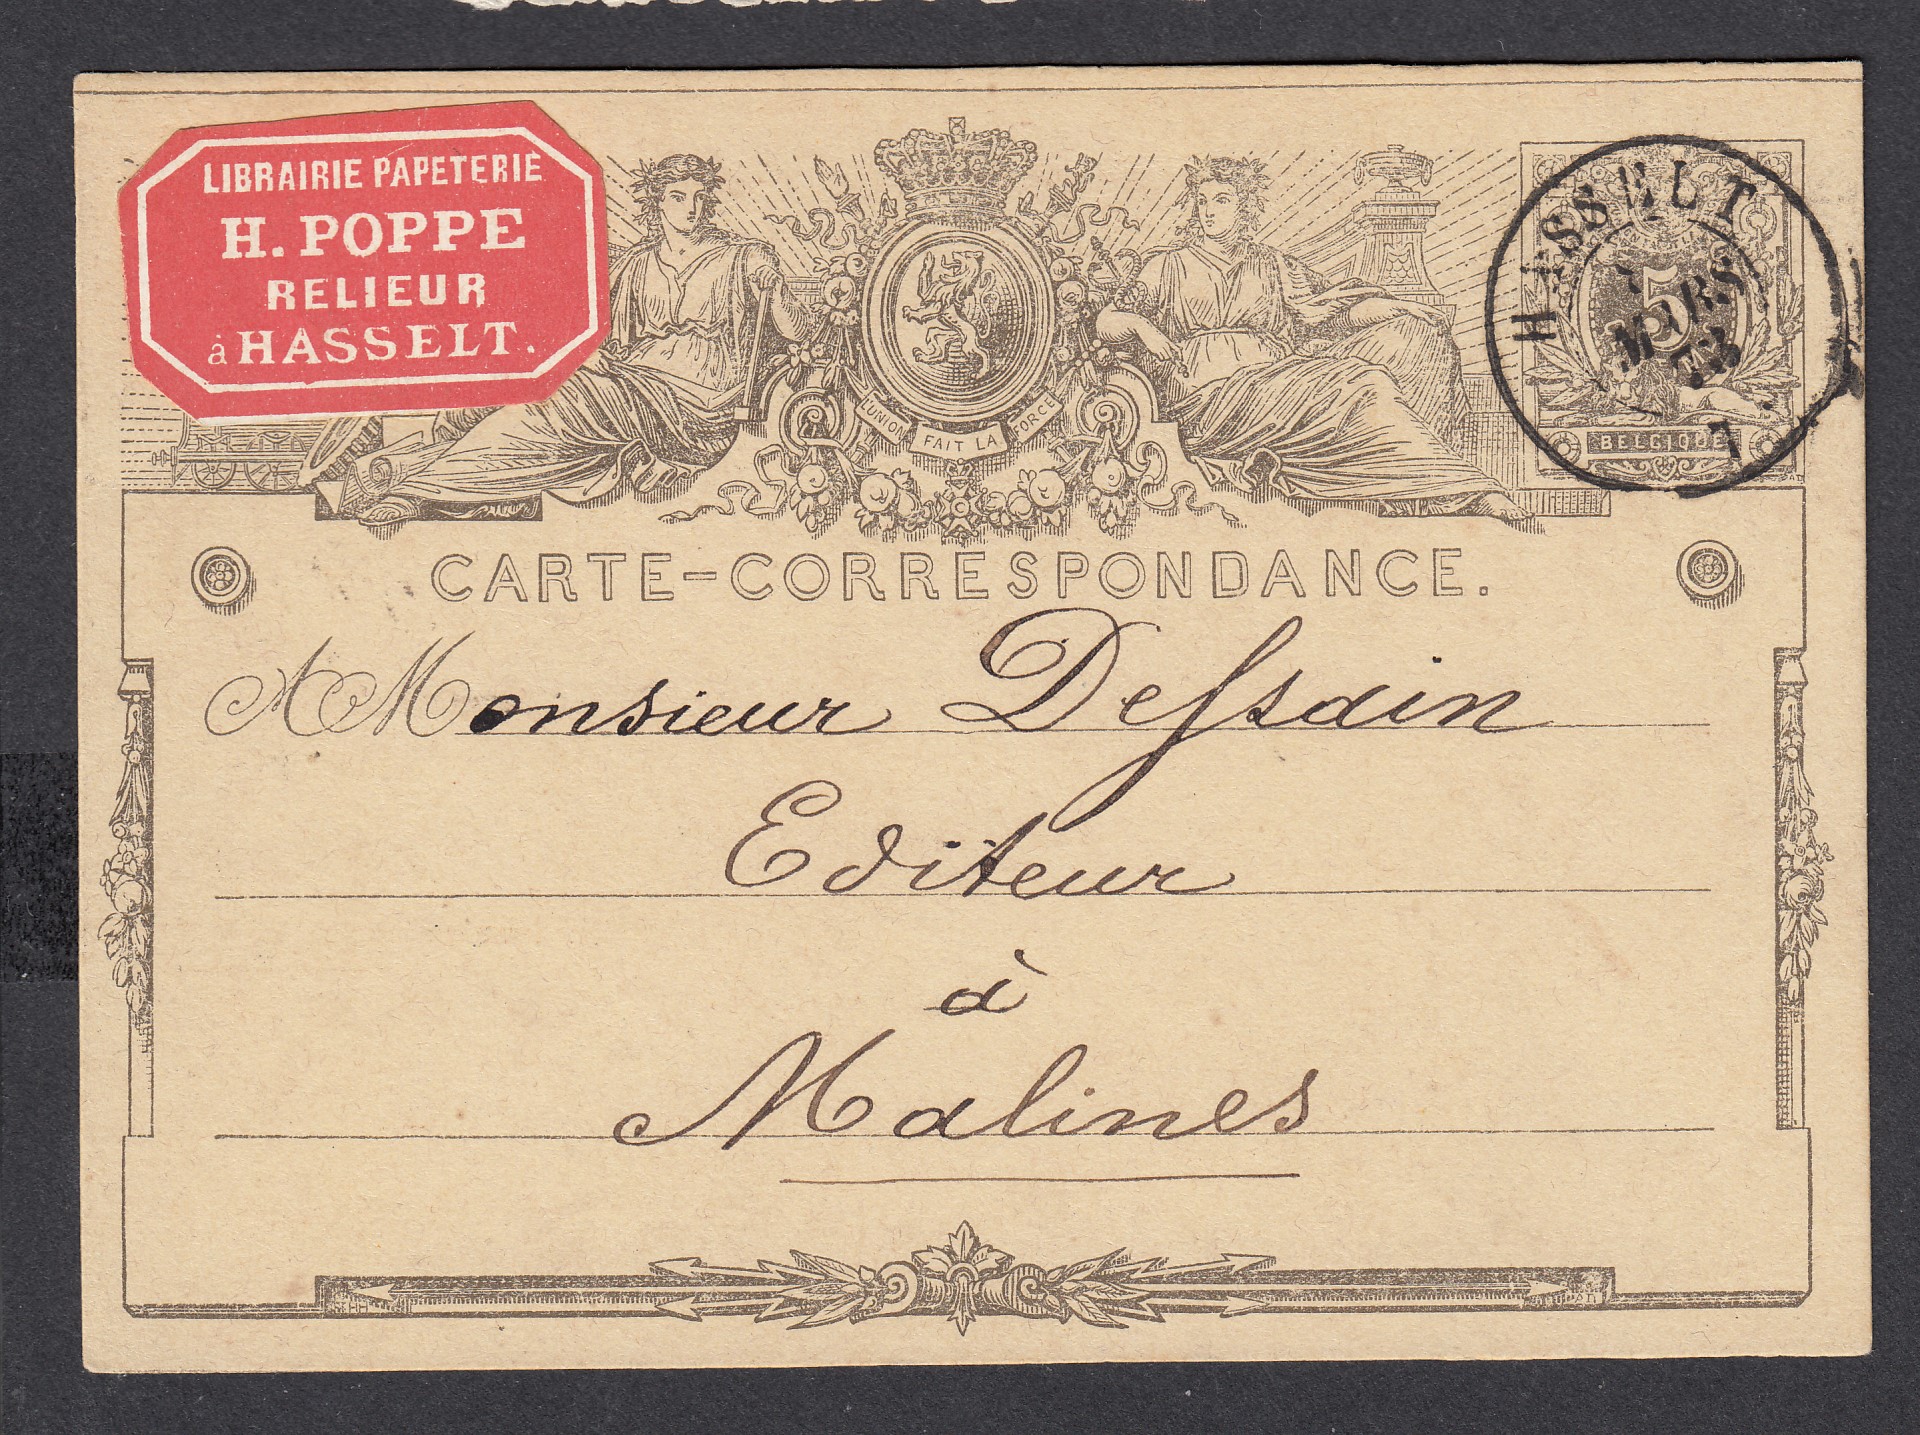 LIBRAIRIE PAPETERIE
H. POPPE
RELIEUR
à HASSELT.
L'UNION FAIT LA FORCE
HASSELT
MARS
73
7
5
BELGIQUE
CARTE-CORRESPONDANCE.
A Monsieur Dessain
Editeur
à
Malines